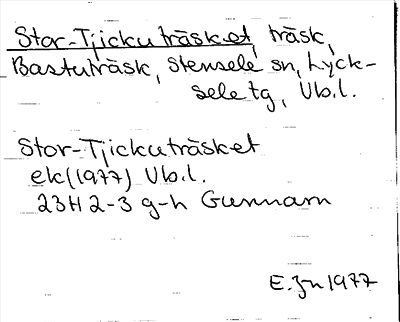 Stor-Tjickuträsket, träsk,
Bastuträsk, Stensele sn, Lyck-
sele tg, Vb.l.
Stor-Tjickuträsket
ek (1977) Vb.l.
23H 2-3 g-h Gunnarn
E. Jn 1977